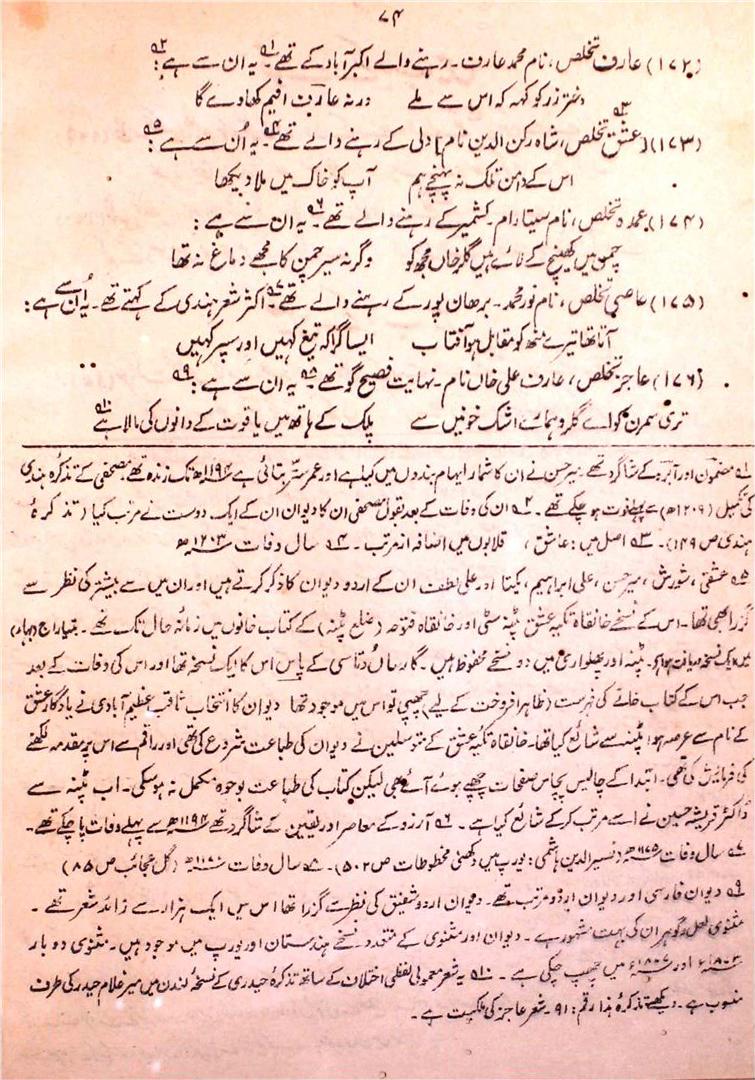 ۷۴
(۱۷۲) عارف تخلص، نام محمد عارف۔ رہنے والے اکبر آباد کے تھے۔ یہ ان سے ہے:
دختر زر کو کہہ کہ اس سے ملے ورنہ عارف افیم کھاوے گا
(۱۷۳) [عشق تخلص، شاہ رکن الدین نام] دلی کے رہنے والے تھے۔ یہ اُن سے ہے:
اس کے دامن تلک نہ پہنچے ہم آپ کو خاک میں ملا دیکھا
(۱۷۴) عمدہ تخلص، نام سیتا رام۔ کشمیر کے رہنے والے تھے۔ یہ ان سے ہے:
چمن میں کھینچ کے لائے ہیں گلرخاں مجھ کو وگرنہ سیر چمن کا مجھے دماغ نہ تھا
(۱۷۵) عاصی تخلص، نام نور محمد۔ برهان پور کے رہنے والے تھے۔ اکثر شعر ہندی کے کہتے تھے۔ یہ اُن سے ہے:
آتا تھا تیرے منھ کو مقابل ہو آفتاب ایسا گرا کہ تیغ کہیں اور سپر کہیں
(۱۷۶) عاجز تخلص، عارف علی خاں نام۔ نہایت فصیح گو تھے۔ یہ ان سے ہے:
تری سمرن کو اے گلرو ہمارے اشک خونیں سے پلک کے ہاتھ میں یاقوت کے دانوں کی مالا ہے
۱ مضمون اور آبرو کے شاگرد تھے۔ میر حسن نے ان کا شمار ایہام بندوں میں کیا ہے اور عمر ستر بتائی ہے ۱۱۹۴ھ تک زندہ تھے۔ مصحفی کے تذکرہ ہندی
کی تکمیل (۱۲۰۹ھ) سے پہلے فوت ہو چکے تھے۔ ۲ ان کی وفات کے بعد بقول مصحفی ان کا دیوان ان کے ایک دوست نے مرتب کیا (تذکرۂ
ہندی ص ۱۴۹)۔ ۳ اصل میں: عاشق، قلابوں میں اضافہ از مرتب۔ ۴ سال وفات ۱۲۰۳ھ
۵ عشقی، شورش، میر حسن، علی ابراہیم، یکتا اور علی لطف ان کے اردو دیوان کا ذکر کرتے ہیں اور ان میں سے بیشتر کی نظر سے
گزرا بھی تھا۔ اس کے نسخے خانقاہ تکیہ عشق پٹنہ سٹی اور خانقاہ فتوحہ (ضلع پٹنہ) کے کتاب خانوں میں زمانہ حال تک تھے۔ بتیا راج (بہار)
میں ایک نسخہ دریافت ہوا۔ پٹنہ اور پھلواری میں دو نسخے محفوظ ہیں۔ گارساں دتاسی کے پاس اس کا ایک نسخہ تھا اور اس کی وفات کے بعد
جب اس کے کتاب خانے کی فہرست (ظاہراً فروخت کے لیے) چھپی تو اس میں موجود تھا دیوان کا انتخاب ثاقب عظیم آبادی نے یادگار عشق
کے نام سے عرصہ ہوا پٹنہ سے شائع کیا تھا۔ خانقاہ تکیۂ عشق کے متوسلین نے دیوان کی طباعت شروع کی تھی اور راقم سے اس پر مقدمہ لکھنے
کی فرمایش کی تھی۔ ابتدا کے چالیس پچاس صفحات چھپے ہوئے آئے بھی لیکن کتاب کی طباعت بوجوہ مکمل نہ ہو سکی۔ اب پٹنہ سے
ڈاکٹر قریشہ حسین نے اسے مرتب کر کے شائع کیا ہے۔ ۶ آرزو کے معاصر اور یقین کے شاگرد تھے ۱۱۹۴ھ سے پہلے وفات پا چکے تھے۔
۷ سال وفات ۱۱۷۵ھ (نصیر الدین ہاشمی: یورپ میں دکھنی مخطوطات ص ۵۰۲)۔ ۸ سال وفات ۱۱۸۰ھ (گل عجائب ص ۸۵)
۹ دیوان فارسی اور دیوان اردو مرتب تھے۔ دیوان اردو شفیق کی نظر سے گزرا تھا اس میں ایک ہزار سے زائد شعر تھے۔
مثنوی لعل و گوہر ان کی بہت مشہور ہے۔ دیوان اور مثنوی کے متعدد نسخے ہندستان اور یورپ میں موجود ہیں۔ مثنوی دو بار
۱۸۰۳ء اور ۱۸۰۷ء میں چھپ چکی ہے۔ ۱۰ یہ شعر معمولی لفظی اختلاف کے ساتھ تذکرہ حیدری کے نسخۂ لندن میں میر غلام حیدر کی طرف
منسوب ہے۔ دیکھیے تذکرہ ہذا رقم: ۹۱۔ شعر عاجز کی ملکیت ہے۔